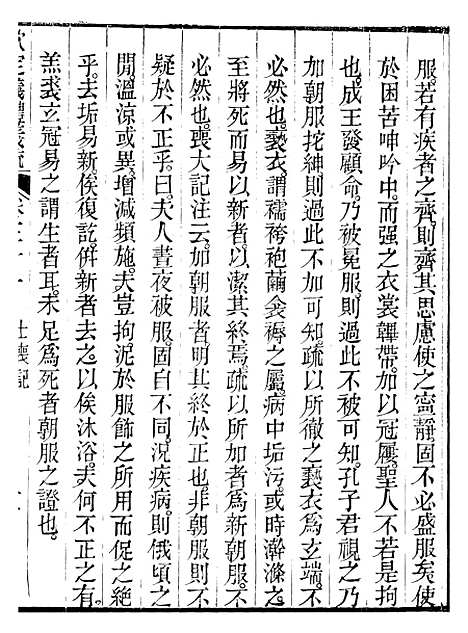 服。若有疾者之齊則齊其思慮使之寍靜固不必盛服矣使
於困苦呻吟中。而强之衣裳鞸帶。加以冠屨。聖人不若是拘
也。成王發顧命。乃被冕服。則過此不被可知。孔子君視之。乃
加朝服拕紳。則過此不加可知。疏以所徹之褻衣爲玄端。不
必然也。褻衣。謂襦袴袍繭衾褥之屬。病中垢污。或時澣滌之。
至將死而易以新者。以潔其終焉。疏以所加者爲新朝服。不
必然也。喪大記注云。加朝服者。明其終於正也。非朝服則
疑於不正乎。曰。夫人晝夜被服。固自不同。况疾病。則俄頃之
閒。溫涼或異。增減頻施。夫豈拘泥於服飾之所用而促之絶
乎。去垢易新。俟復訖。併新者去之。以俟沐浴。夫何不正之有。
羔裘玄冠易之。謂生者耳。未足爲死者朝服之證也。
欽定儀禮義疏 卷三十一 士喪記